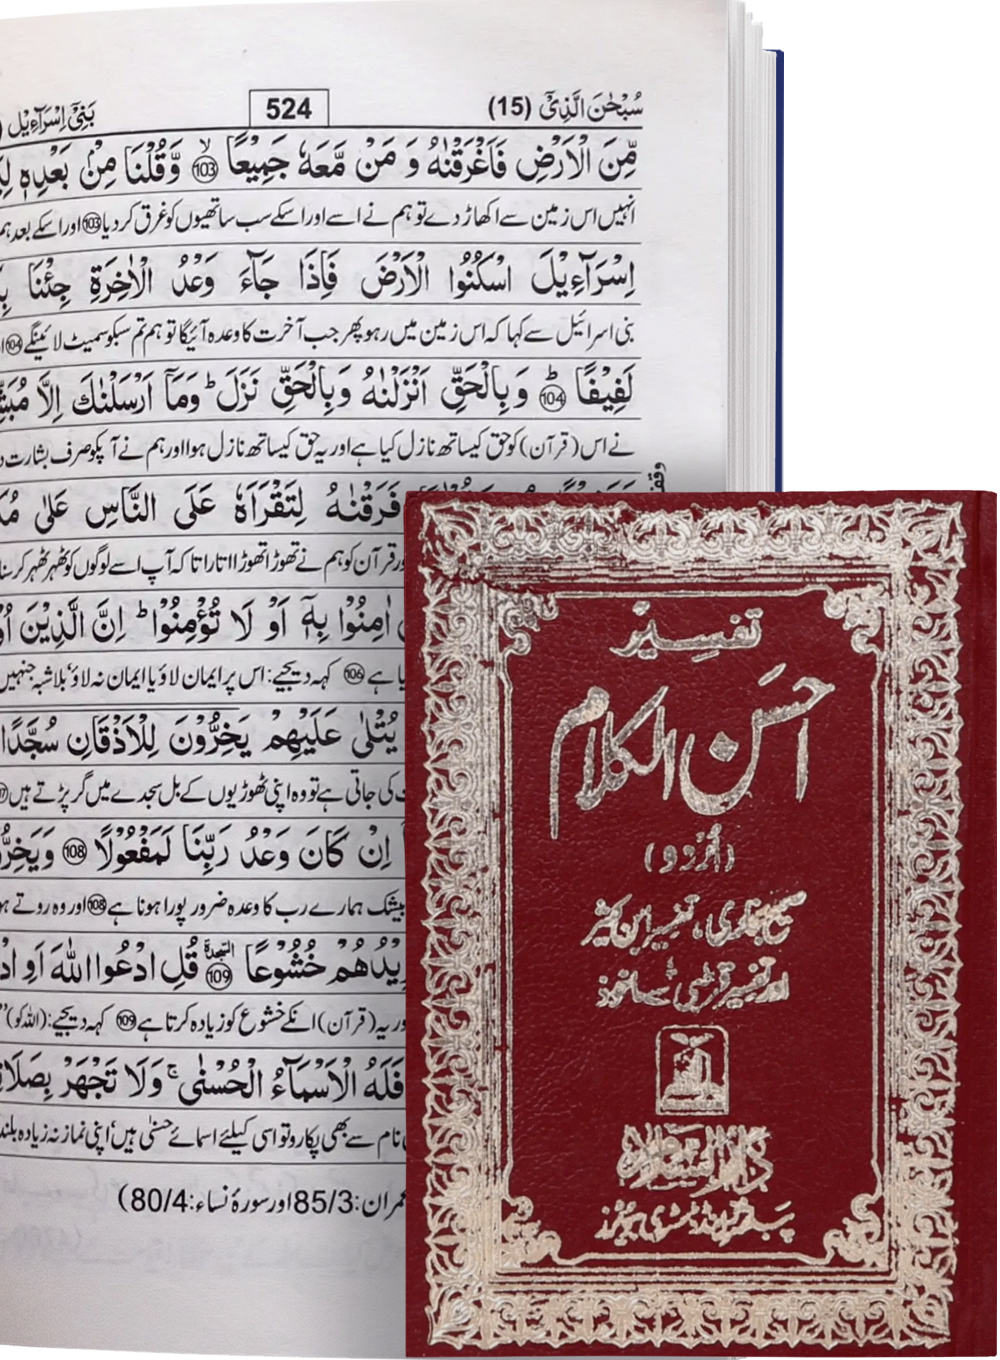 سُبْحٰنَ الَّذِیْٓ (15)
524
بَنِیْٓ اِسْرَآءِیْل
مِّنَ الْاَرْضِ فَاَغْرَقْنٰهُ وَ مَنْ مَّعَهٗ جَمِیْعًا ۙ 103 وَّقُلْنَا مِنْۢ بَعْدِهٖ
انہیں اس زمین سے اکھاڑ دے تو ہم نے اسے اور اسکے سب ساتھیوں کو غرق کر دیا 103 اور اسکے بعد ہم
اِسْرَآءِیْلَ اسْكُنُوا الْاَرْضَ فَاِذَا جَآءَ وَعْدُ الْاٰخِرَةِ جِئْنَا
بنی اسرائیل سے کہا کہ اس زمین میں رہو پھر جب آخرت کا وعدہ آئیگا تو ہم تم سبکو سمیٹ لائینگے 104
لَفِیْفًا ؕ 104 وَبِالْحَقِّ اَنْزَلْنٰهُ وَبِالْحَقِّ نَزَلَ ؕ وَمَاۤ اَرْسَلْنٰكَ اِلَّا
نے اس (قرآن) کو حق کیساتھ نازل کیا ہے اور یہ حق کیساتھ نازل ہوا اور ہم نے آپکو صرف بشارت
فَرَقْنٰهُ لِتَقْرَاَهٗ عَلَى النَّاسِ عَلٰى
قرآن کو ہم نے تھوڑا تھوڑا اتارا تا کہ آپ اسے لوگوں کو ٹھہر ٹھہر کر
اٰمِنُوْا بِهٖۤ اَوْ لَا تُؤْمِنُوْا ؕ اِنَّ الَّذِیْنَ
ہے 106 کہہ دیجیے: اس پر ایمان لاؤ یا ایمان نہ لاؤ بلاشبہ جنہیں
یُتْلٰى عَلَیْهِمْ یَخِرُّوْنَ لِلْاَذْقَانِ سُجَّدًا
کی جاتی ہے تو وہ اپنی ٹھوڑیوں کے بل سجدے میں گر پڑتے ہیں
اِنْ كَانَ وَعْدُ رَبِّنَا لَمَفْعُوْلًا 108
بیشک ہمارے رب کا وعدہ ضرور پورا ہونا ہے 108 اور وہ روتے
خُشُوْعًا السجدة 109 قُلِ ادْعُوا اللّٰهَ اَوِ
(قرآن) انکے خشوع کو زیادہ کرتا ہے 109 کہہ دیجیے: (اللہ کو)
فَلَهُ الْاَسْمَآءُ الْحُسْنٰى ۚ وَلَا تَجْهَرْ
نام سے بھی پکارو تو اسی کیلئے اسمائے حسنٰی ہیں اپنی نماز نہ زیادہ بلند
85/3 اور سورۂ نساء: 80/4)
تفسیر
احسن الکلام
(اُردو)
صحیح بخاری، تفسیر ابن کثیر
اور تفسیر قرطبی سے ماخوذ
دارالسلام
پبلشرز اینڈ ڈسٹری بیوٹرز